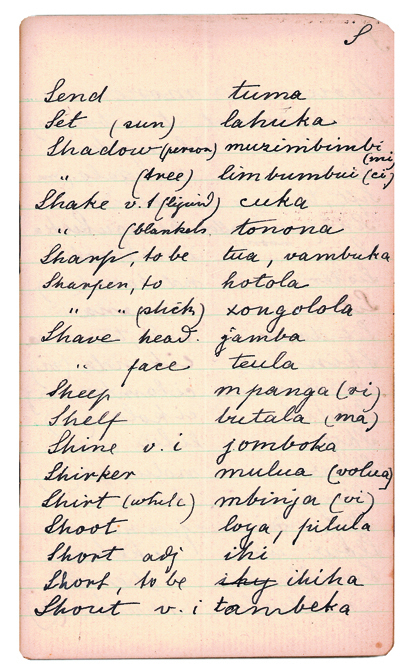 S
Send tuma
Set (sun) lahuka
Shadow (person) muzimbimbi (mi)
" (tree) limbumbui (ci)
Shake v.t (liquid) cuka
" (blankets tonona
Sharp, to be tua, vambuka
Sharpen, to hotola
" " (stick) xongolola
Shave head. jamba
" face teula
Sheep mpanga (vi)
Shelf butala (ma)
Shine v.i jomboka
Shirker mulua (volua)
Shirt (white) mbinja (vi)
Shoot loya, pilula
Short adj ihi
Short, to be ihiha
Shout v.i tambeka